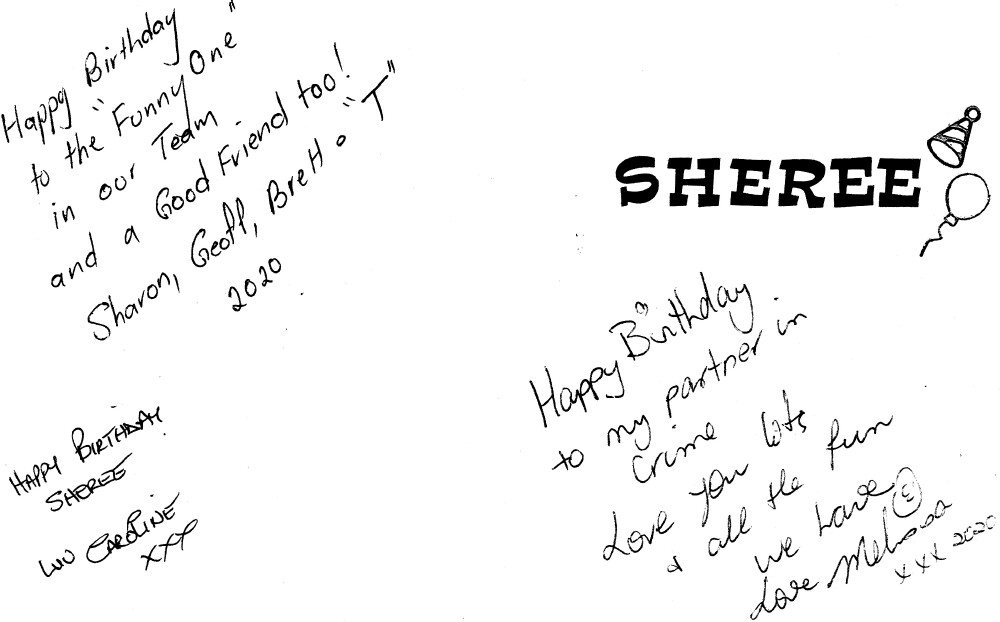 Happy Birthday
to the "Funny One"
in our Team
and a Good Friend too!
Sharon, Geoff, Brett & "T"
2020
HAPPY BIRTHDAY
SHEREE
LUV CAROLINE
XXX
SHEREE
Happy Birthday
to my partner in
Crime
Love you lots
& all the fun
we have
Love Melissa
xxx 2020